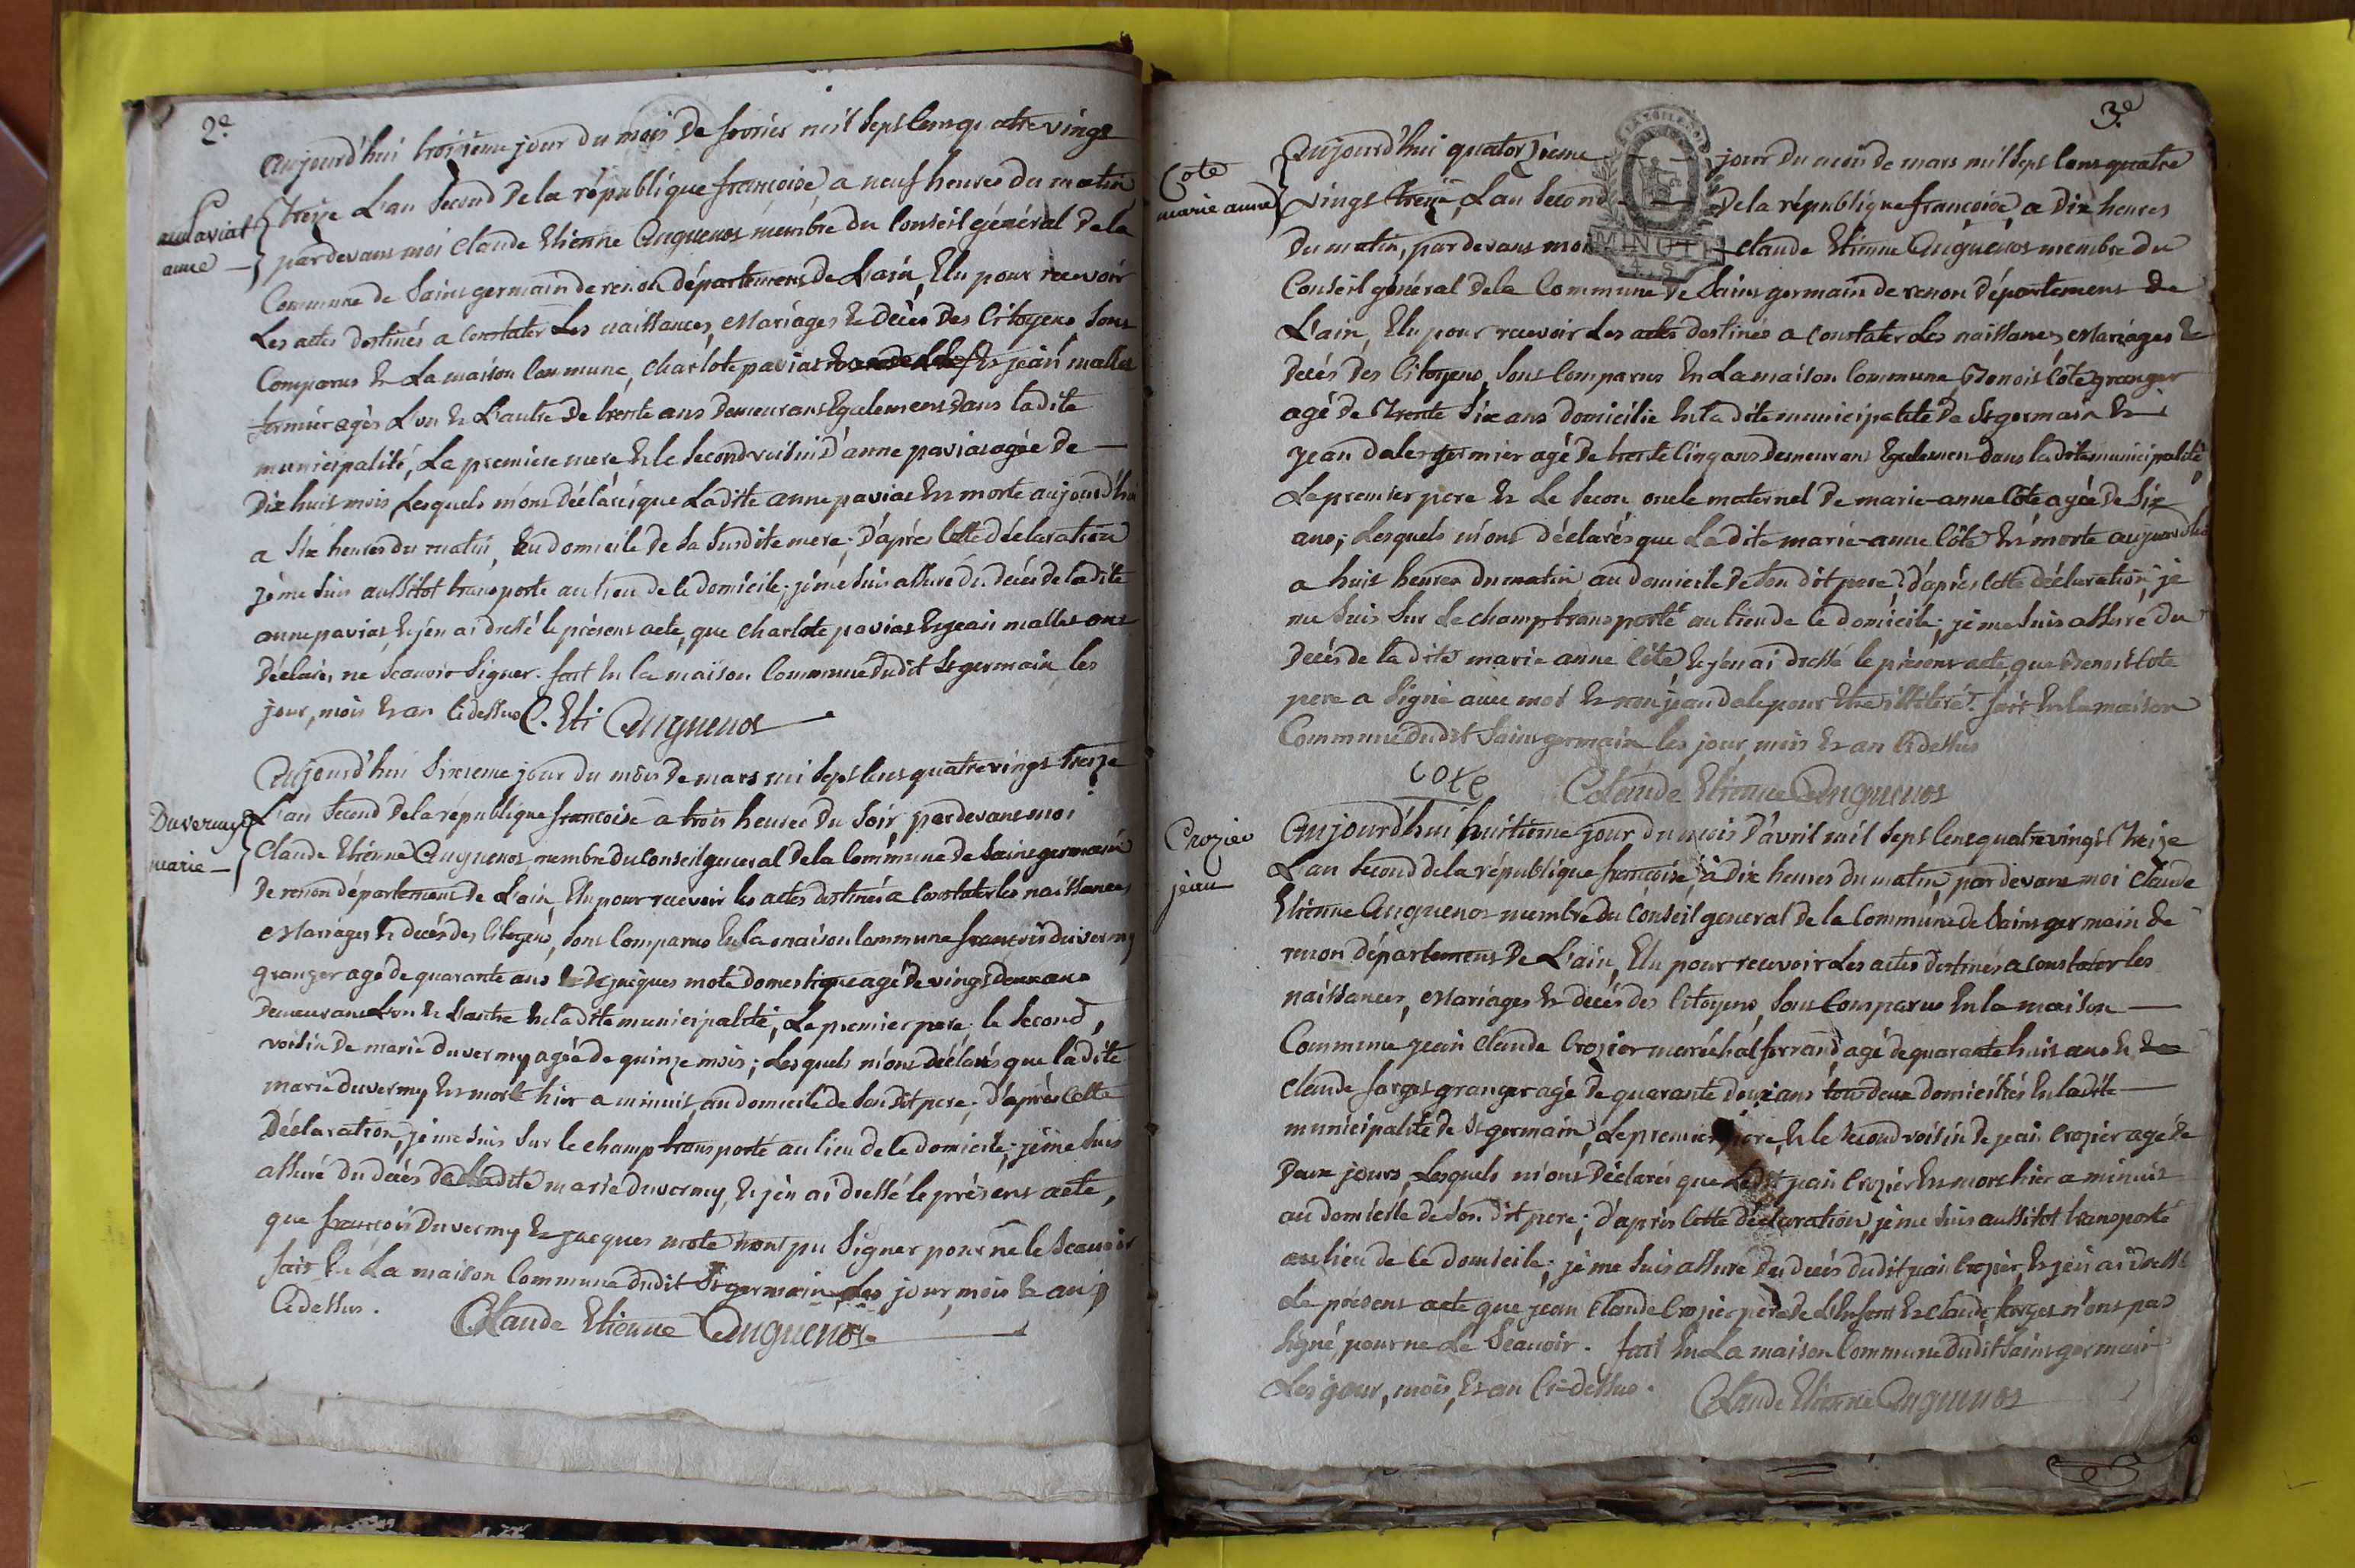 2.e
aujourd'hui troisième jour du mois de fevrier mil sept cent quatre vingt
paviat
anne
treize L'an second de la république françoise a neuf heures du matin
pardevant moi claude Etienne Auguenot membre du Conseil général de la
Commune de Saint germain de renon département de L'ain, Elu pour recevoir
Les actes destinés a constater Les naissances, Mariages Et décès des Citoyens sont
Comparus En La maison Commune, charlote paviat Et jean mallet
fermier agés L'un Et L'autre de trente ans demeurant Egalement dans ladite
municipalité, La premiere mere Et le second voisin d'anne paviat agée de
dix huit mois, Lesquels m'ont déclarés que Ladite anne paviat Est morte aujourd'hui
a six heures du matin, au domicile de sa susdite mere; d'après cette déclaration
je me suis aussitot transporté au lieu de ce domicile; je me suis assuré du décès de ladite
anne paviat, Et j'en ai dressé le présent acte, que charlote paviat Et jean mallet ont
déclarés ne scavoir signer. fait En la maison Commune dudit St germain les
jour, mois Et an Cidessus C. Eti Auguenot
Aujourd'hui sixieme jour du mois de mars mil sept cent quatre vingt treize
Duvernay
marie
L'an second de la république françoise a trois heures du soir, pardevant moi
Claude Etienne Auguenot membre du conseil general de la Commune de Saint germain
de renon département de L'ain, Elu pour recevoir les actes destinés a constater les naissances
Mariages Et decés des Citoyens, sont Comparus En la maison Commune françois duverny
granger agé de quarante ans Et jacques mote domestique agé de vingt deux ans
demeurant L'un Et L'autre En ladite municipalité, Le premier pere, le second,
voisin de marie duverny agée de quinze mois; Lesquels m'ont déclarés que ladite
marie duverny Est morte hier a minuit, au domicile de son dit pere; d'après cette
déclaration, je me suis sur le champ transporté au lieu de ce domicile; je me suis
assuré du décès de Ladite marie duverny, Et j'en ai dressé le présent acte,
que françois Duverny Et jacques mote n'ont pu signer pour ne le scavoir
fait En La maison Commune dudit St germain, Les jour, mois Et an
Cidessus. Claude Etienne Auguenot
3.e
Cote
marie anne
Aujourd'hui quatorzieme jour du mois de mars mil sept cent quatre
vingt treize, L'an second de la république françoise, a dix heures
MINUTE
4. S
du matin, pardevant moi claude Etienne Auguenot membre du
Conseil général de la Commune de Saint germain de renon département de
L'ain, Elu pour recevoir Les actes destinés a constater Les naissances, Mariages Et
décés des Citoyens, sont Comparus En La maison Commune, Benoit Cote granger
agé de trente six ans domicilié En ladite municipalité de St germain Et
jean dale fermier agé de trente cinq ans demeurant Egalement dans ladite municipalité,
Le premier pere Et Le secon oncle maternel de marie-anne Cote agée de six
ans; Lesquels m'ont déclarés que Ladite marie-anne Côte Est morte aujourd'hui
a huit heures du matin, au domicile de son dit pere; d'après cette déclaration, je
me suis sur Le champ transporté au lieu de ce domicile; je me suis assuré du
décés de ladite marie anne Côte, Et j'en ai dressé le présent acte, que Benoit Cote
pere a signé avec moi Et non jean dale pour Etre illitéré. fait En la maison
Commune dudit Saint germain les jour, mois Et an Cidessus
cote Claude Etienne Auguenot
Crozier
jean
Aujourd'hui huitième jour du mois d'avril mil sept cent quatre vingt treize
L'an second de la république françoise, à dix heures du matin, pardevant moi Claude
Etienne Auguenot membre du Conseil general de la Commune de Saint germain de
renon département de L'ain, Elu pour recevoir Les actes destinés a constater les
naissances, Mariages Et décés des Citoyens, sont Comparus En la maison
Commune jean Claude Crozier maréchal ferrand, agé de quarante huit ans Et
claude farges granger agé de quarante deux ans tous deux domiciliés En ladite
municipalité de St germain, Le premier pere, Et le second voisin de jean Crozier agé de
deux jours, Lesquels m'ont déclarés que Ledit jean Crozier Est mort hier a minuit
au domicile de son dit pere; d'après cette déclaration, je me suis aussitot transporté
au lieu de ce domicile; je me suis assuré du decès dudit jean Crozier, Et j'en ai dressé
Le présent acte que jean Claude Crozier pere de L'Enfant Et claude farges n'ont pas
signé, pour ne Le scavoir. fait En La maison Commune dudit saint germain
Les jour, mois, Et an Ci-dessus. Claude Etienne Auguenot